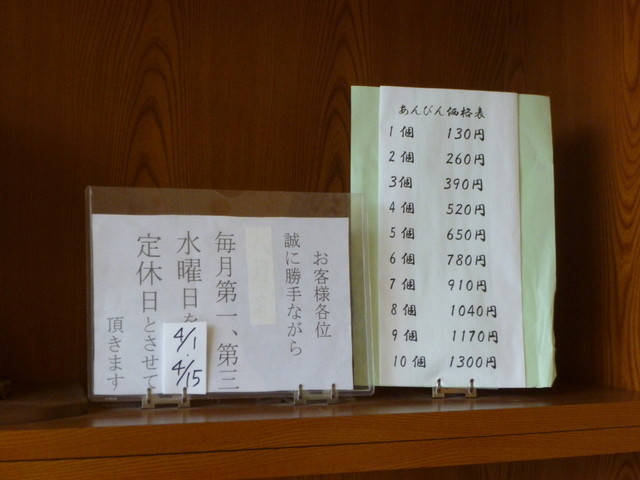 お客様各位
誠に勝手ながら
毎月第一、第三
水曜日を
定休日とさせて
頂きます
4/1
4/15
あんびん価格表
1個 130円
2個 260円
3個 390円
4個 520円
5個 650円
6個 780円
7個 910円
8個 1040円
9個 1170円
10個 1300円